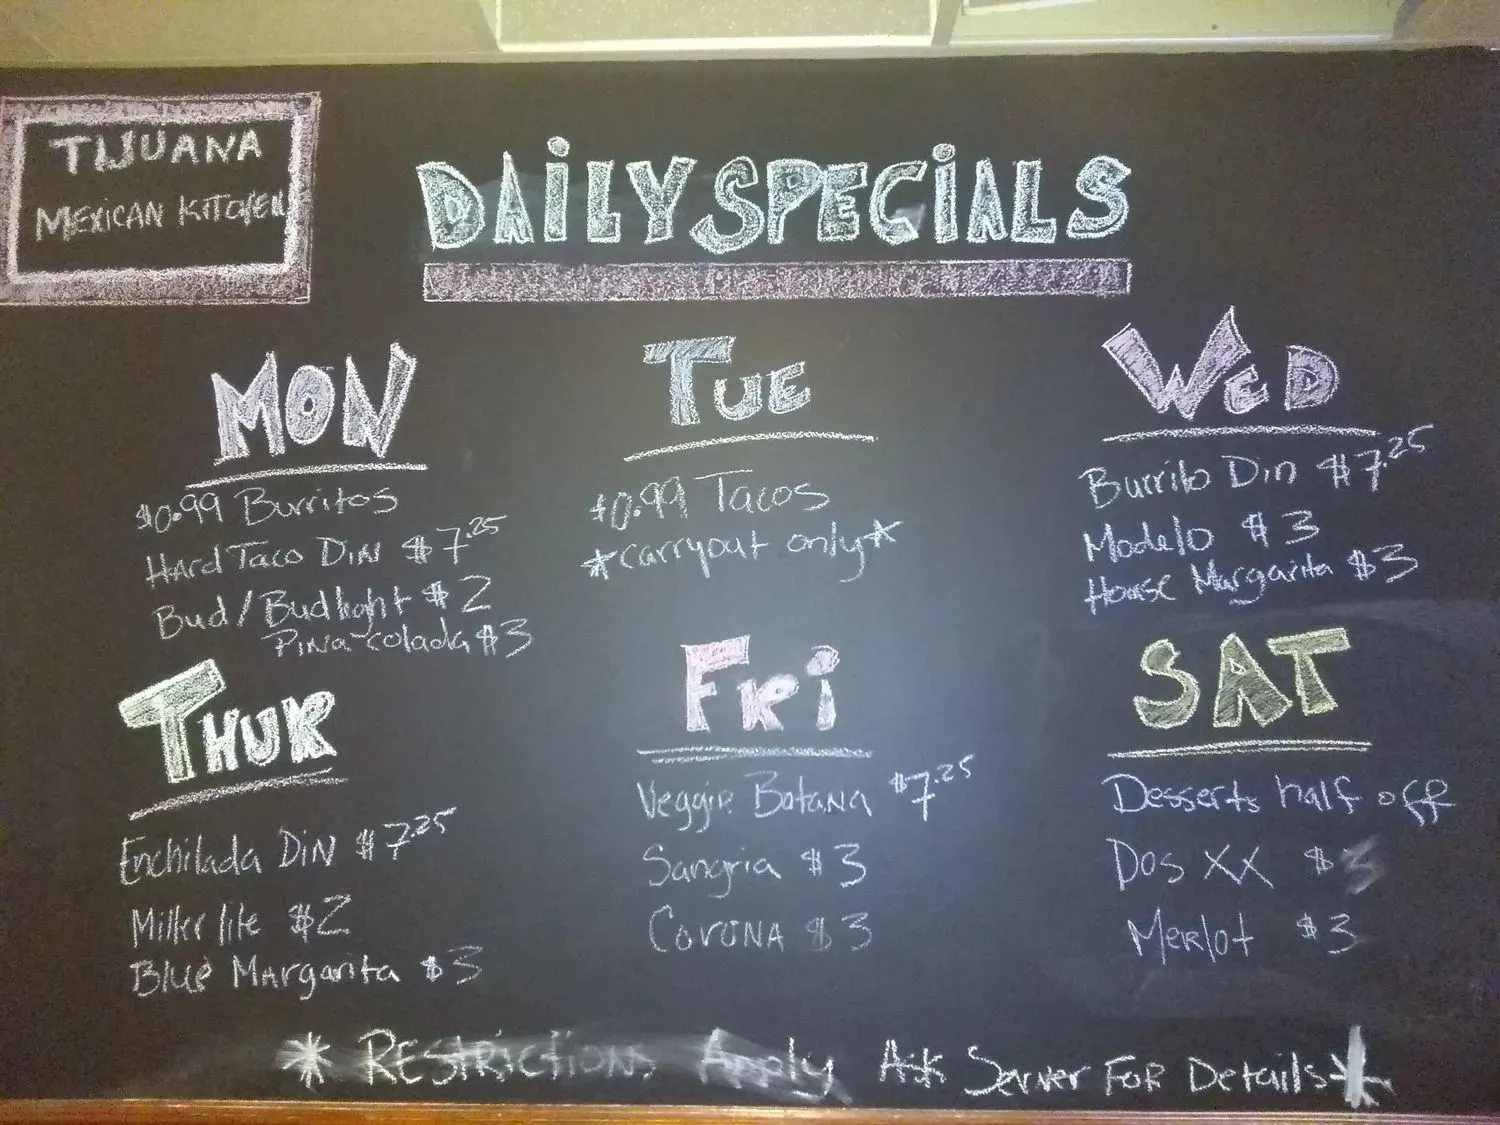 TIJUANA
MEXICAN KITCHEN
DAILY SPECIALS
MON
$0.99 Burritos
HARD TACO DIN $7.25
Bud/Budlight $2
PINA-colada $3
TUE
$0.99 Tacos
*carryout only*
WED
Burrito Din $7.25
Modelo $3
House Margarita $3
THUR
Enchilada DIN $7.25
Miller lite $2
Blue Margarita $3
FRi
Veggie Botana $7.25
Sangria $3
CORONA $3
SAT
Desserts half off
Dos XX $3
Merlot $3
* RESTRICTIONS Apply Ask Server For Details*